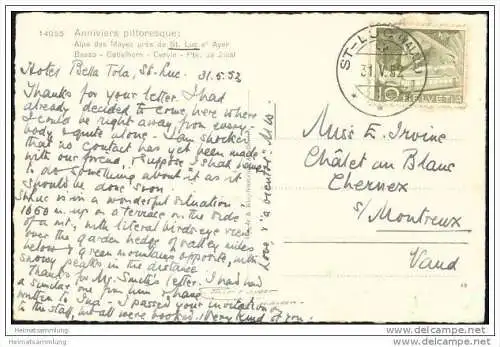 14055 Anniviers pittoresque:
Alpe des Mayes près de St. Luc et Ayer
Besso - Gabelhorn - Cervin - Pte. de Zinal
Hotel Bella Tola, St-Luc. 31.5.52
Thanks for your letter. I had
already decided to come here where
I could be right away from every-
body & quite alone. I am shocked
that no contact has yet been made
with our friend, & suppose I shall have
to do something about it as it
should be done soon.
St Luc is in a wonderful situation -
1650 m. up on a terrace on the side
of a mt., with literal birds-eye view
over the garden hedge of valley miles
below, & green mountains opposite, with
snowy peaks in the distance
Thanks for Mr. Smith's letter. I had had
a similar one from him & have
written to
- I passed your invitation on
to the staff, we all were booked. Very kind of you.
Love
ST-LUC (VALAIS)
31.V.52
10
HELVETIA
Miss E. Irvine
Châlet au Blanc
Chernex
s/ Montreux
Vaud
heimatsammlung.de
Heimatsammlung
http://www.heimatsammlung.de
Heimatsammlung